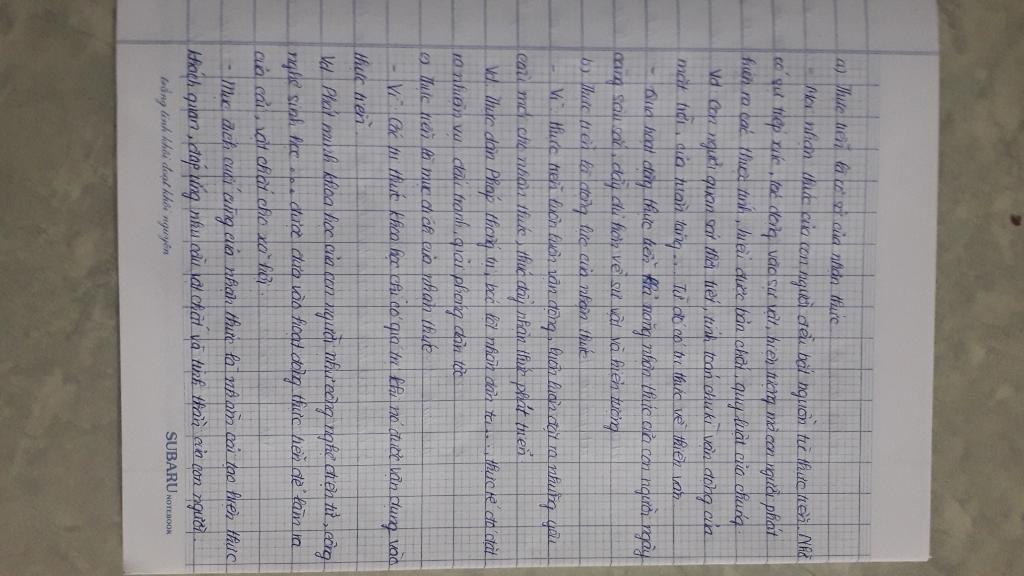 a) Thực tiễn là cơ sở của nhận thức
- Mọi nhận thức của con người đều bắt nguồn từ thực tiễn. Nhờ
có sự tiếp xúc, tác động vào sự vật, hiện tượng mà con người phát
hiện ra các thuộc tính, hiểu được bản chất quy luật của chúng.
Vd Con người quan sát thời tiết, tính toán chu kì vận động của
mặt trời, của mặt trăng.... Từ đó có tri thức về thiên văn.
- Qua hoạt động thực tiễn mà nhận thức của con người ngày
càng sâu sắc, đầy đủ hơn về sự vật và hiện tượng
b) Thực tiễn là động lực của nhận thức
- Vì thực tiễn luôn luôn vận động, luôn luôn đặt ra những yêu
cầu mới cho nhận thức, thúc đẩy nhận thức phát triển.
Vd Thực dân Pháp thống trị, bóc lột nhân dân ta ...., thực tế đó đặt
ra nhiệm vụ đấu tranh, giải phóng dân tộc
c) Thực tiễn là mục đích của nhận thức
- Vì: Các tri thức khoa học chỉ có giá trị khi nó được vận dụng vào
thực tiễn.
Vd Phát minh khoa học của con người như công nghệ điện tử, công
nghệ sinh học .... được đưa vào hoạt động thực tiễn để làm ra
của cải, vật chất cho xã hội.
- Mục đích cuối cùng của nhận thức là nhằm cải tạo hiện thực
khách quan, đáp ứng nhu cầu vật chất và tinh thần của con người.
SUBARU NOTEBOOK